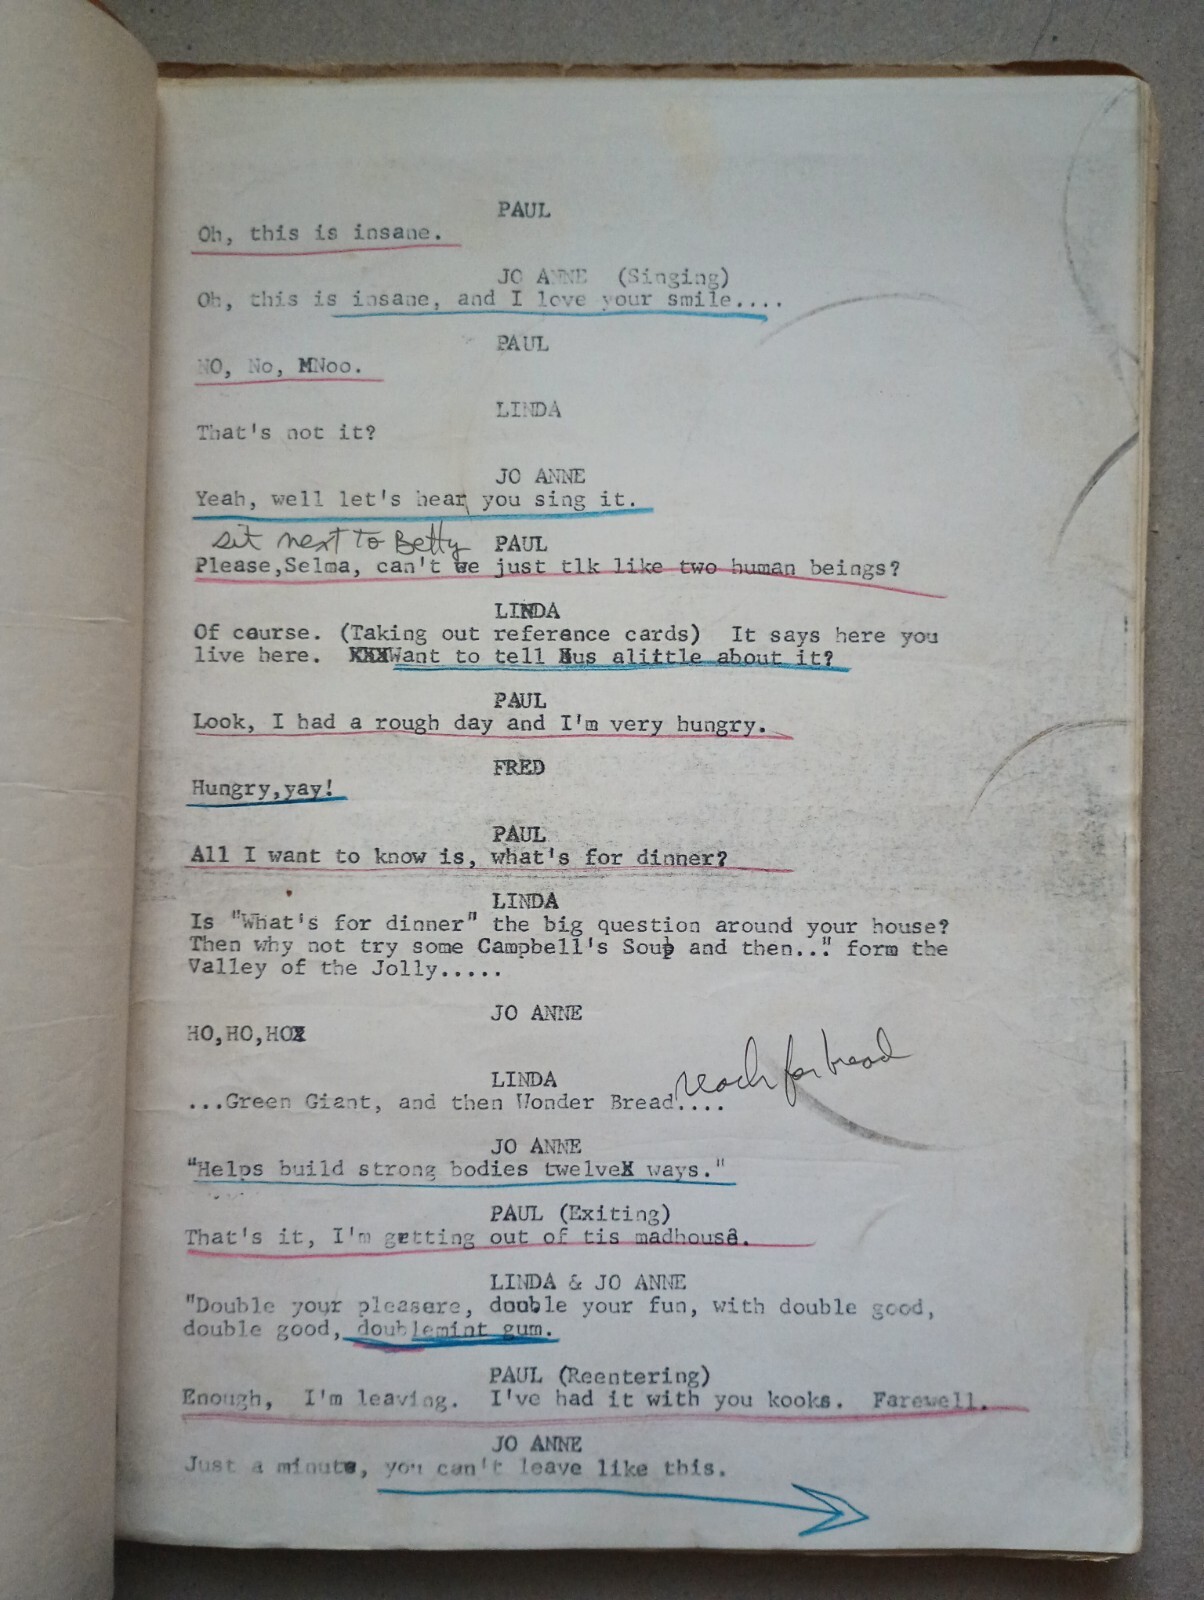 PAUL
Oh, this is insane.
JO ANNE (Singing)
Oh, this is insane, and I love your smile....
PAUL
NO, No, MNoo.
LINDA
That's not it?
JO ANNE
Yeah, well let's hear you sing it.
sit next to Betty
PAUL
Please,Selma, can't we just tlk like two human beings?
LINDA
Of course. (Taking out reference cards) It says here you
live here. XXXWant to tell Xus alittle about it?
PAUL
Look, I had a rough day and I'm very hungry.
FRED
Hungry,yay!
PAUL
All I want to know is, what's for dinner?
LINDA
Is "What's for dinner" the big question around your house?
Then why not try some Campbell's Soup and then..." form the
Valley of the Jolly.....
JO ANNE
HO,HO,HOX
reach for bread
LINDA
...Green Giant, and then Wonder Bread....
JO ANNE
"Helps build strong bodies twelveX ways."
PAUL (Exiting)
That's it, I'm getting out of tis madhouse.
LINDA & JO ANNE
"Double your pleasere, double your fun, with double good,
double good, doublemint gum.
PAUL (Reentering)
Enough, I'm leaving. I've had it with you kooks. Farewell.
JO ANNE
Just a minute, you can't leave like this.